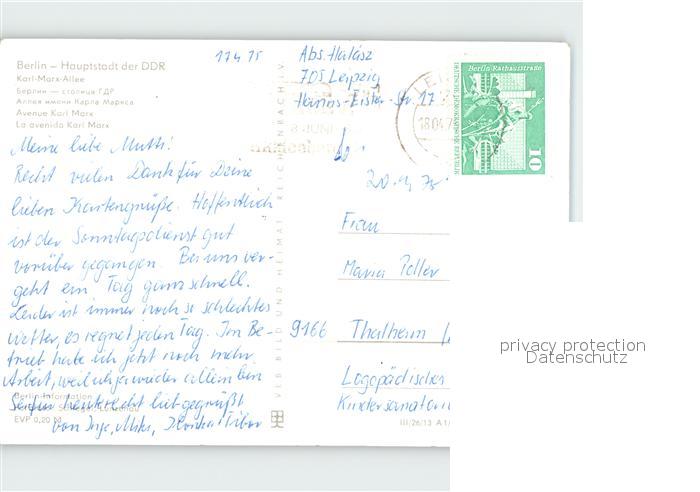 Berlin – Hauptstadt der DDR
Karl-Marx-Allee
Берлин — столица ГДР
Аллея имени Карла Маркса
Avenue Karl Marx
La avenida Karl Marx
17.4.75
Abs. Halász
705 Leipzig
Hanns-Eisler-Str. 17
Meine liebe Mutti!
Recht vielen Dank für Deine
lieben Kartengrüße. Hoffentlich
ist der Sonntagsdienst gut
vorüber gegangen. Bei uns ver-
geht ein Tag ganz schnell.
Leider ist immer noch so schlechtes
Wetter, es regnet jeden Tag. Im Be-
trieb habe ich jetzt noch mehr
Arbeit, weil ich ja wieder allein bin
Sei für heute recht lieb gegrüßt
von Inge, Miki, Tibor
Berlin-Information
EVP 0,20 M
VEB BILD UND HEIMAT REICHENBACH I. V.
8. JUNI
LEI
18.04.7
Berlin Rathausstraße
DEUTSCHE DEMOKRATISCHE REPUBLIK
10
20.4.75
Frau
Maria
9166 Thalheim
Logopädisches
Kindersanatori
III/26/13 A1/
privacy protection
Datenschutz